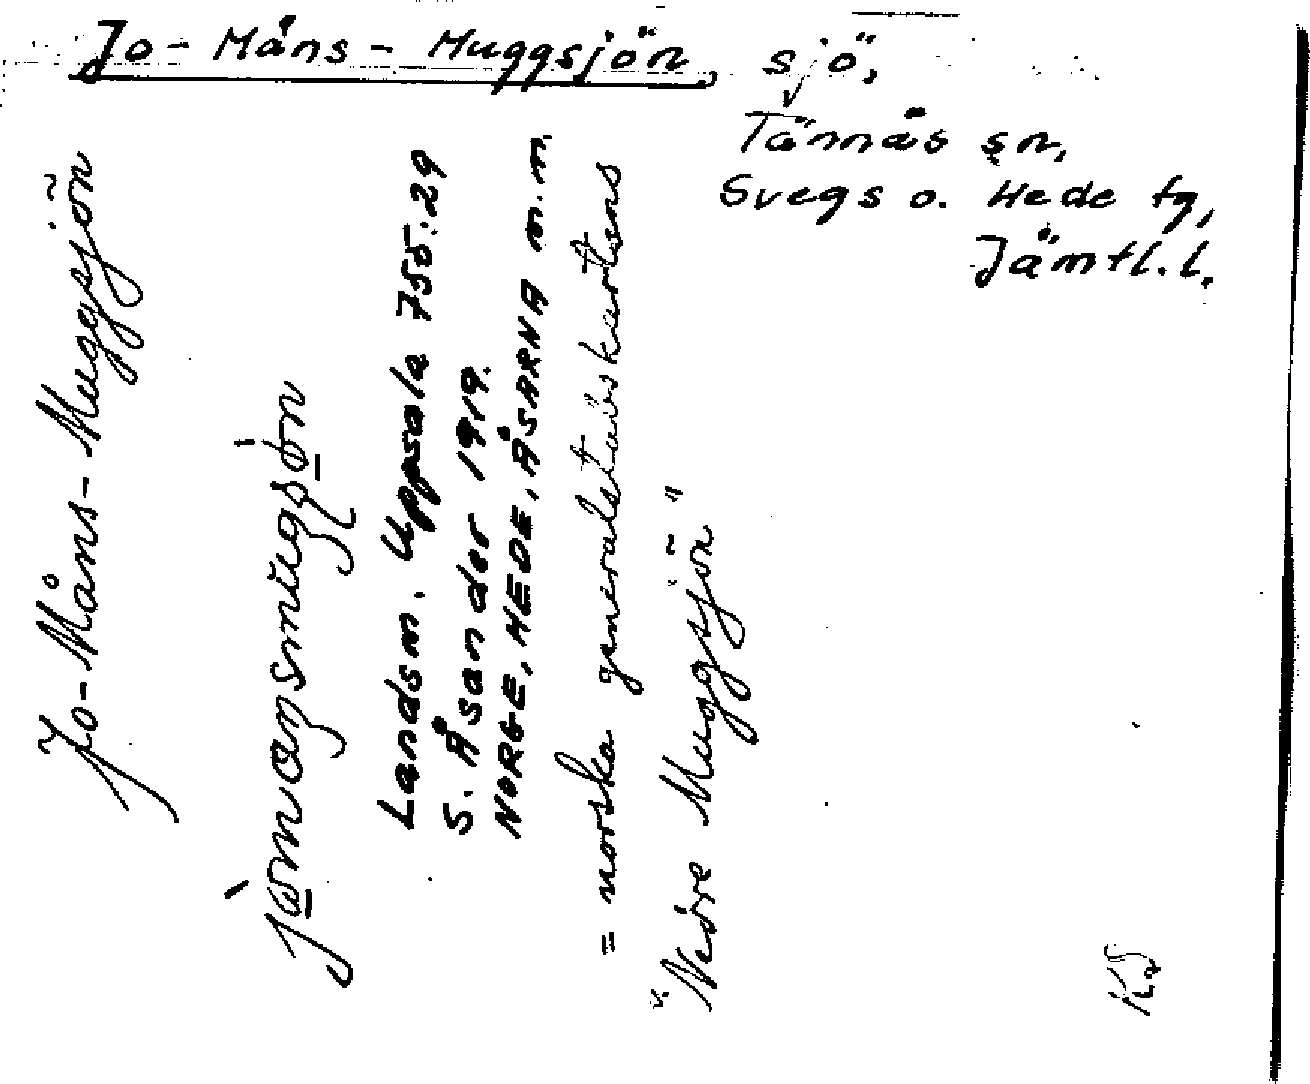 Jo-Måns-Muggsjön, sjö,
Tännäs sn,
Svegs o. Hede tg,
Jämtl.l.
Jo-Måns-Muggsjön
Landsm. Uppsala 755:29
S. Åsander 1919.
NORGE, HEDE, ÅSARNA m.m.
= norska generalstabskartens
"Nedre Muggsjön"
KJ